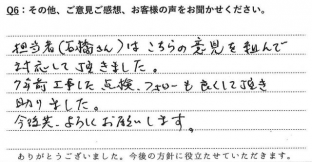 Q6：その他、ご意見ご感想、お客様の声をお聞かせください。
担当者(石橋さん)はこちらの意見を組んで
対応して頂きました。
7年前工事した点検、フォローも良くして頂き
助かりました。
今後共、よろしくお願いします。
ありがとうございました。今後の方針に役立たせていただきます。